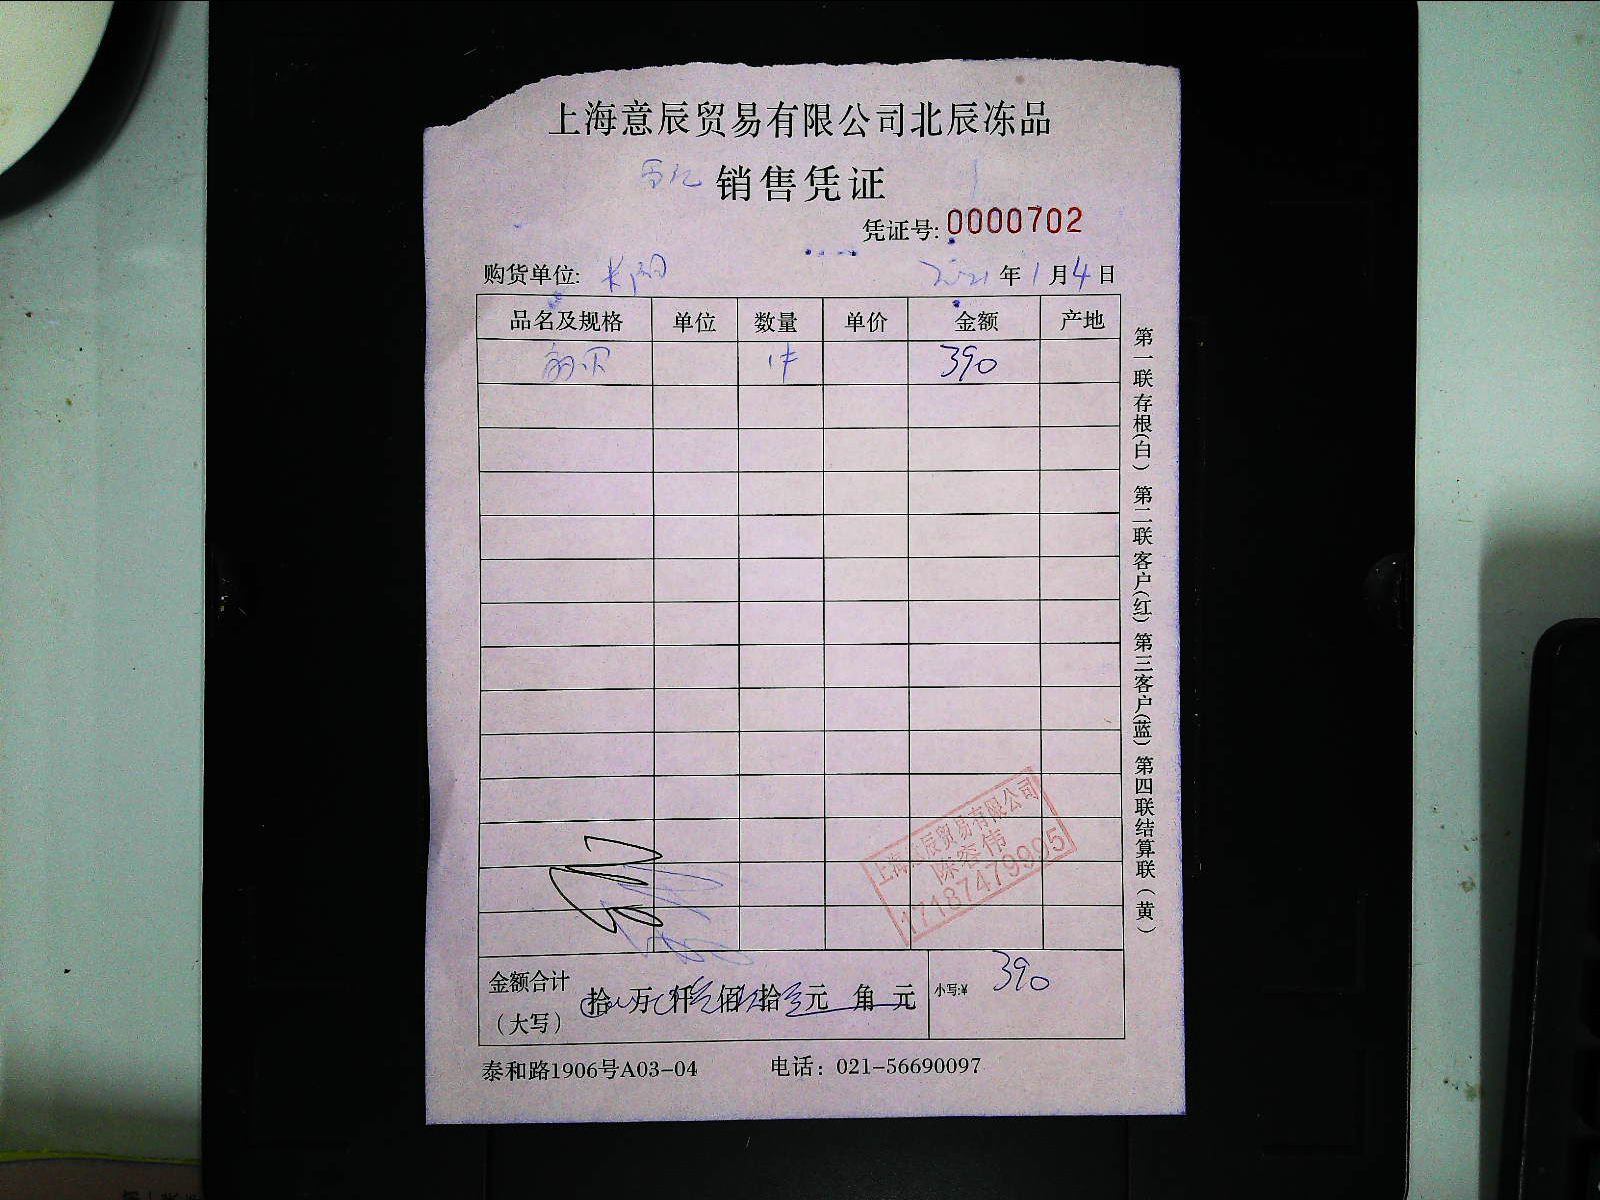 上海意辰贸易有限公司北辰冻品
销售凭证
凭证号: 0000702
购货单位: 2021年1月4日
品名及规格 单位 数量 单价 金额 产地
1件 390
第一联存根(白) 第二联客户(红) 第三客户(蓝) 第四联结算联(黄)
上海意辰贸易有限公司
陈容伟
17187479995
金额合计 拾 万 仟 佰 拾 元 角 元 小写:¥ 390
(大写)
泰和路1906号A03-04 电话: 021-56690097